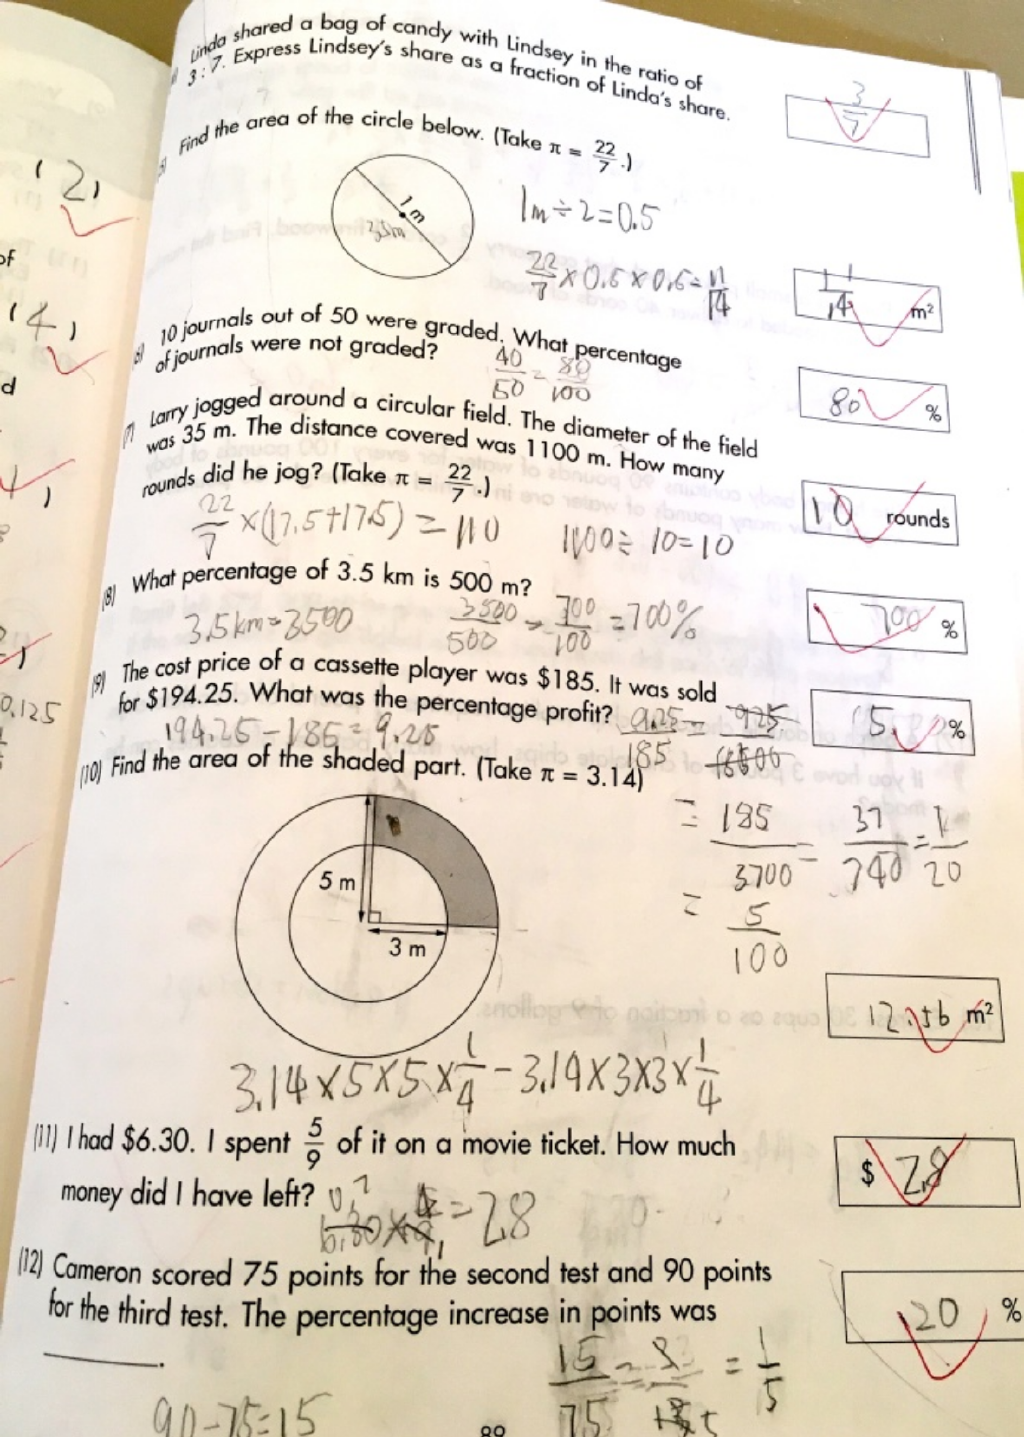 Linda shared a bag of candy with Lindsey in the ratio of
3 : 7. Express Lindsey's share as a fraction of Linda's share.
3
7
Find the area of the circle below. (Take π = 22/7.)
1 m
1m ÷ 2 = 0.5
22/7 × 0.5 × 0.5 = 11/14
11/14 m²
10 journals out of 50 were graded. What percentage
of journals were not graded?
40/50 = 80/100
80 %
(7) Larry jogged around a circular field. The diameter of the field
was 35 m. The distance covered was 1100 m. How many
rounds did he jog? (Take π = 22/7.)
22/7 × (17.5+17.5) = 110
10 rounds
(8) What percentage of 3.5 km is 500 m?
3.5km = 3500
3500/500 = 700/100 = 700%
700 %
(9) The cost price of a cassette player was $185. It was sold
for $194.25. What was the percentage profit?
194.25 - 185 = 9.25
9.25/185 =
5 %
(10) Find the area of the shaded part. (Take π = 3.14)
= 185/3700 = 37/740 = 1/20
= 5/100
5 m
3 m
12.56 m²
3.14 × 5 × 5 × 1/4 - 3.14 × 3 × 3 × 1/4
(11) I had $6.30. I spent 5/9 of it on a movie ticket. How much
money did I have left?
= 2.8
$ 2.8
(12) Cameron scored 75 points for the second test and 90 points
for the third test. The percentage increase in points was
______.
20 %
15/75
= 1/5
90-75=15
(2)
(4)
of
d
0.125